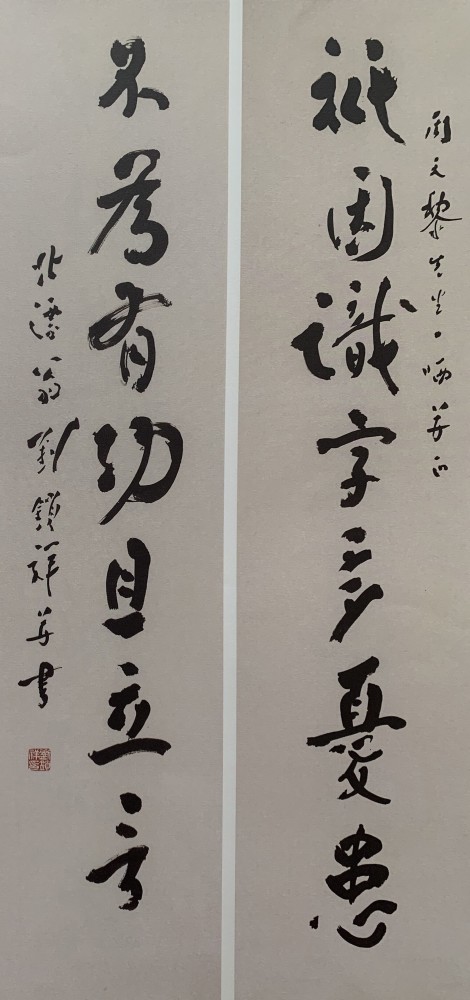 周文黎先生一哂并正
祇因識字多憂患
不為有功且立言
北翁劉鎖祥并書